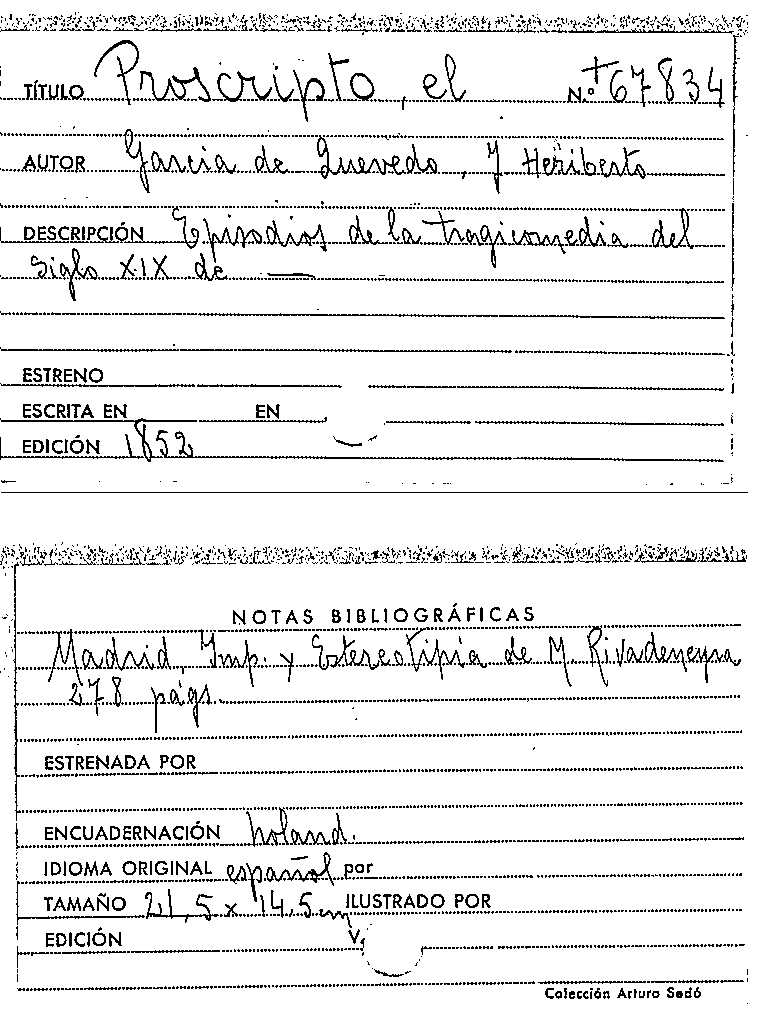 TÍTULO Proscripto, el N.º +67834
AUTOR Garcia de Quevedo, J Heriberto
DESCRIPCIÓN Episodios de la tragicomedia del
Siglo XIX de —
ESTRENO
ESCRITA EN EN
EDICIÓN 1852
NOTAS BIBLIOGRÁFICAS
Madrid, Imp. y Estereotipia de M. Rivadeneyra
278 págs.
ESTRENADA POR
ENCUADERNACIÓN holand.
IDIOMA ORIGINAL español por
TAMAÑO 21,5 x 14.5 cm ILUSTRADO POR
EDICIÓN
Colección Arturo Sedó